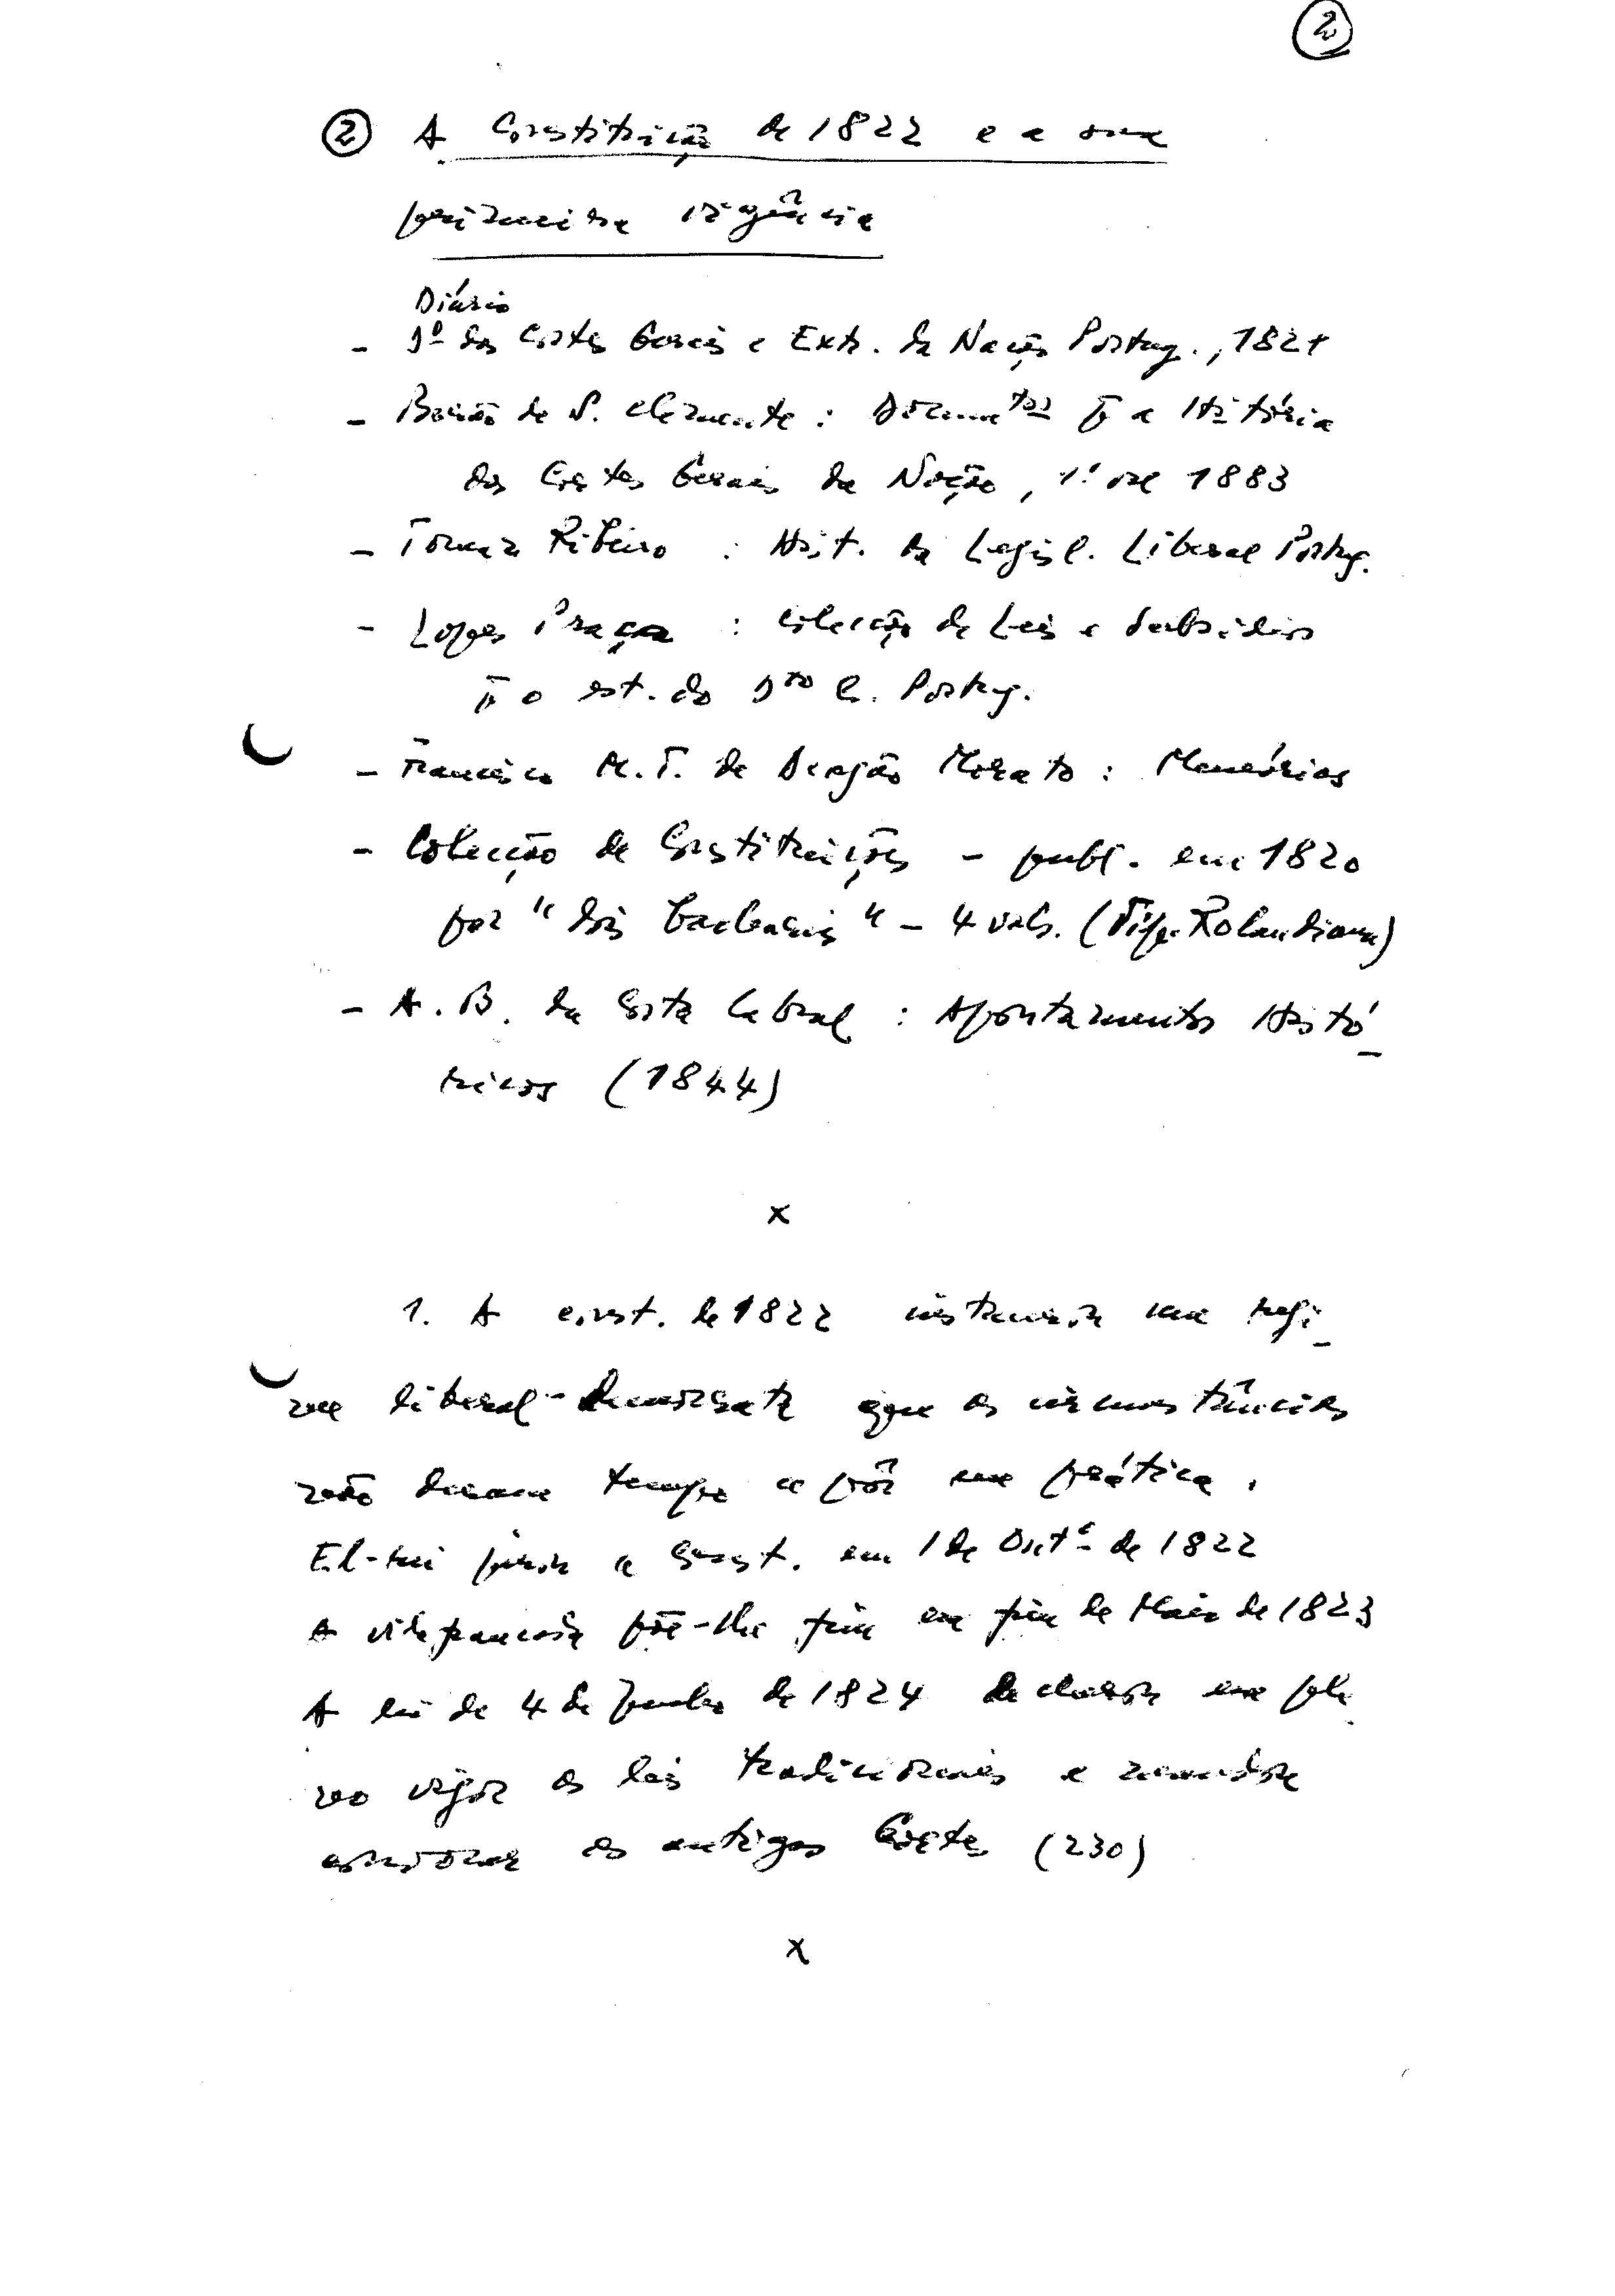 2
② A Constituição de 1822 e a sua
primeira vigência
Diário
- Dº das Cortes Gerais e Extr. da Nação Portug., 1821
- Barão de S. Clemente: Documtos p a História
das Cortes Gerais da Nação, 1º vol 1883
- Tomaz Ribeiro : Hist. da Legisl. Liberal Portug.
- Lopes Praça : Colecção de Leis e Subsídios
p o est. do Dto C. Portug.
- Francisco M.T. de Aragão Morato : Memórias
- Colecção de Constituições - publ. em 1820
por "dois bachareis" - 4 vols. (Tip. Rolandiana)
- A. B. da Costa Cabral : Apontamentos Histó-
ricos (1844)
x
1. A const. de 1822 instaurou um regi-
me liberal-democrata que as circunstâncias
não deram tempo a pôr em prática.
El-rei jurou a Const. em 1 de Outº de 1822
A vilafrancada põe-lhe fim em fim de Maio de 1823
A lei de 4 de Junho de 1824 declarou em ple-
no vigor as leis tradicionais e mandou
convocar as antigas Cortes (230)
x